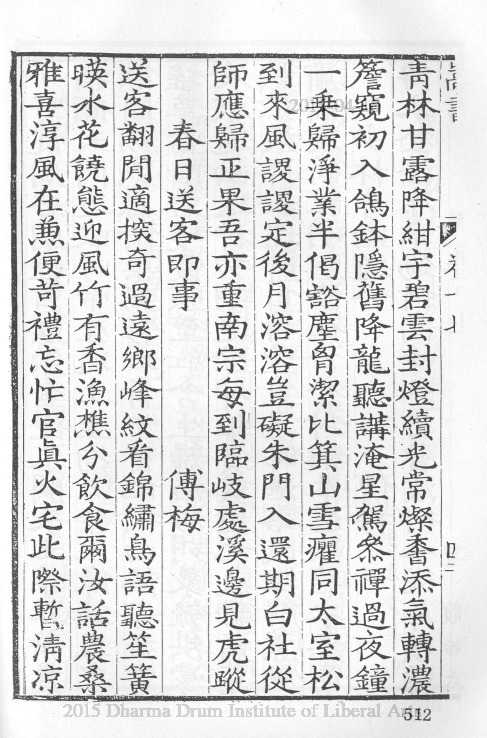 嵩書
卷十七
四二
青林甘露降紺宇碧雲封燈續光常燦香添氣轉濃
簷窺初入鴿鉢隱舊降龍聽講淹星駕叅禪過夜鐘
一乗歸淨業半偈豁塵胷潔比箕山雪癯同太室松
到來風謖謖定後月溶溶豈礙朱門入還期白社從
師應歸正果吾亦重南宗每到臨岐處溪邊見虎蹤
春日送客即事 傅梅
送客翻閒適探奇過遠鄉峰紋看錦繡鳥語聽笙簧
暎水花饒態迎風竹有香漁樵分飲食爾汝話農桑
雅喜淳風在兼便苛禮忘忙官眞火宅此際暫清凉
2015 Dharma Drum Institute of Liberal Arts
512